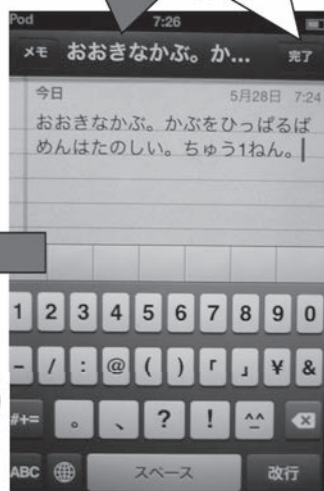 Pod 7:26
メモ おおきなかぶ。か... 完了
今日 5月28日 7:24
おおきなかぶ。かぶをひっぱるば
めんはたのしい。ちゅう1ねん。
1 2 3 4 5 6 7 8 9 0
- / : @ ( ) 「 」 ¥ &
#+= 。 、 ? ! ^^
ABC スペース 改行